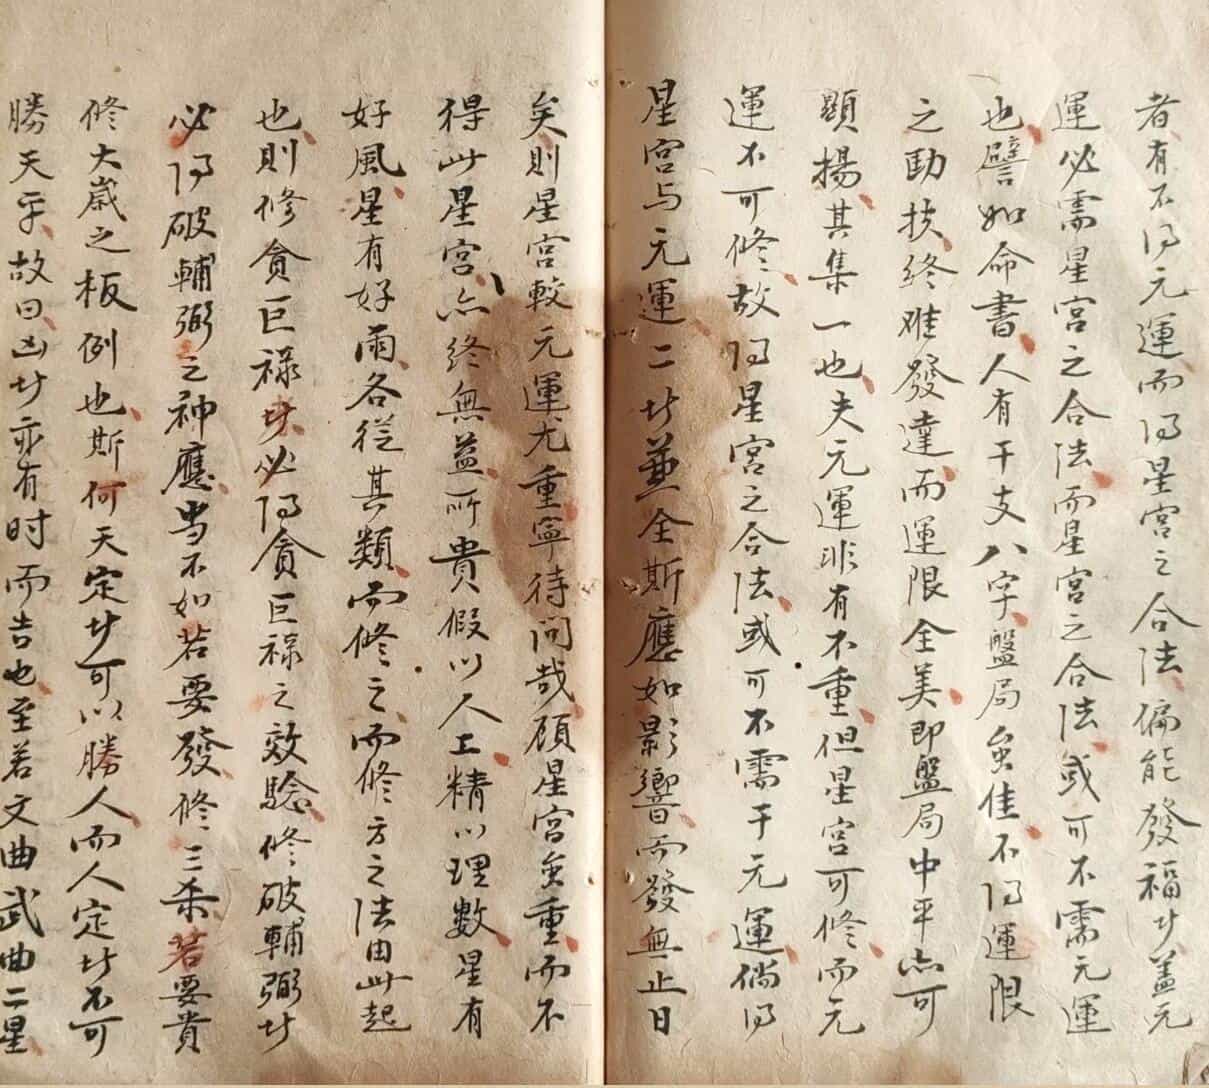 者有不得元運而得星宮之合法偏能發福者蓋元
運必需星宮之合法而星宮之合法或可不需元運
也譬如命書人有干支八字盤局虽佳不得運限
之助扶终难發達而運限全美即盤局中平亦可
顯揚其集一也夫元運非有不重但星宮可修而元
運不可修故得星宮之合法或可不需于元運倘得
星宮与元運二者兼全斯應如影響而發無止日
矣則星宮較元運尤重寧待问哉顾星宮虽重而不
得此星宮亦终無益所貴假以人工精以理數星有
好風星有好雨各從其類而修之而修方之法由此起
也則修貪巨禄者必得貪巨禄之效驗修破輔弼者
必得破輔弼之神應當不如若要發修三杀若要貴
修大嵗之板例也斯何天定者可以勝人而人定者不可
勝天乎故曰凶者亦有时而吉也至若文曲武曲二星